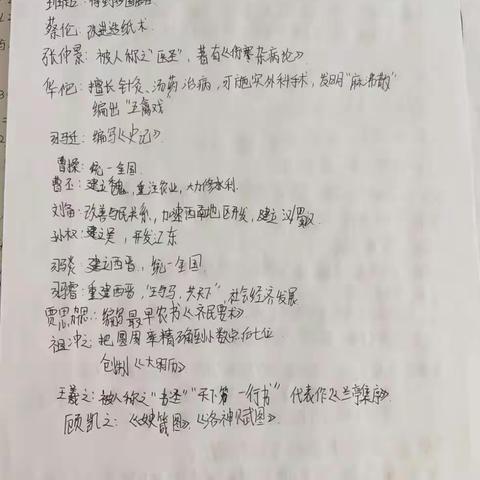 蔡伦：改进造纸术
张仲景：被人称之"医圣"，著有《伤寒杂病论》
华佗：擅长针灸、汤药治病，可施实外科手术，发明"麻沸散"
编出"五禽戏
司马迁：编写《史记》
曹操：统一全国
曹丕：建立魏，重注农业，大力修水利.
刘备：改善与民关系，加速西南地区开发，建立汉蜀
孙权：建立吴，开发江东
司马炎：建立西晋，统一全国
司马睿：重建西晋，"王与马，共天下"，社会经济发展
贾思勰：编写最早农书《齐民要术》
祖冲之：把圆周率精确到小数点后七位
创制《大明历》
王羲之：被人称之"书圣""天下第一行书" 代表作《兰亭集序》
顾凯之：《女箴图》《洛神赋图》